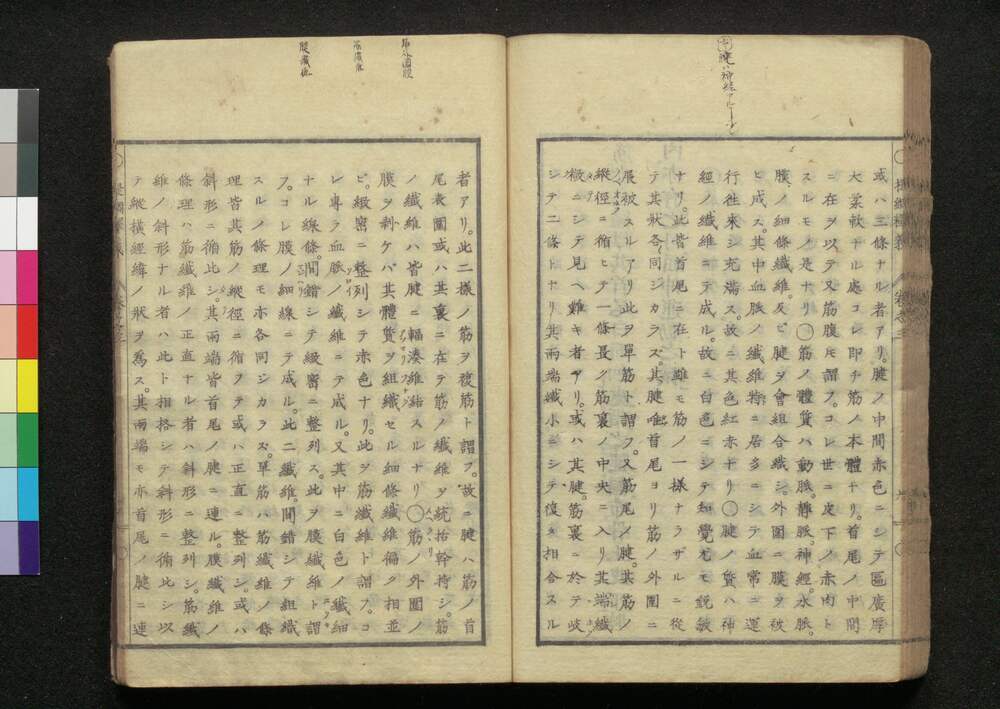 或ハ三條ナル者アリ。腱ノ中間赤色ニシテ區廣厚
大柔軟ナル處コレ即チ筋ノ本體ナリ。首尾ノ中間
ニ在ヲ以テ又筋腹トモ謂フ。コレ世ニ皮下ノ赤肉ト
スルモノ是ナリ〇筋ノ體質ハ動脈。靜脈。神經。水脈。
膜ノ細條纖維。及ビ腱ヲ會組合織シ。外圍ニ膜ヲ被
ヒ成ス。其中血脈ノ纖維特ニ居多ニシテ血常ニ運
行往來シ充満ス。故ニ其色紅赤ナリ〇腱ノ質ハ神
經ノ纖維ニテ成ル。故ニ白色ニシテ知覺尤モ鋭敏
ナリ。此皆首尾ニ在ト雖モ筋ノ一様ナラザルニ從
テ其状各同ジカラズ其腱唯首尾ヨリ筋ノ外圍ニ
展被スルアリ此ヲ單筋ト謂フ。又筋尾ノ腱。其筋ノ
縱徑ニ循ヒテ一條長ク筋裏ノ中央ニ入リ其端纖
微ニシテ見ヘ難キ者アリ。或ハ其腱。筋裏ニ於テ岐
シテ二條トナリ其兩端纖小ニシテ復タ相合スル
者アリ。此二様ノ筋ヲ複筋ト謂フ。故ニ腱ハ筋ノ首
尾表圍或ハ其裏ニ在テ筋ノ纖維ヲ統括幹持シ。筋
ノ纖維ハ皆腱ニ輻湊維結スルナリ〇筋ノ外圍ノ
膜ヲ剥ケバ其體質ヲ組織セル細條纖維徧ク相並
ビ。緻密ニ整列シテ赤色ナリ。此ヲ筋纖維ト謂フ。コ
レ專ラ血脈ノ纖維ニテ成ル。又其中ニ白色ノ纖細
ナル線條。間錯シテ緻密ニ整列ス。此ヲ膜纖維ト謂
フ。コレ膜ノ細線ニテ成ル。此二纖維。間錯シテ組織
スルノ條理モ亦各同シカラス。單筋ハ筋纖維ノ條
理皆其筋ノ縱徑ニ循ヲテ或ハ正直ニ整列シ。或ハ
斜形ニ循比シ。其兩端皆首尾ノ腱ニ連ル。膜纖維ノ
條理ハ筋纖維ノ正直ナル者ハ斜形ニ整列シ。筋纖
維ノ斜形ナル者ハ此ト相捨シテ斜形ニ循比シ以
テ縱橫經緯ノ狀ヲ爲ス。其兩端モ亦首尾ノ腱ニ連